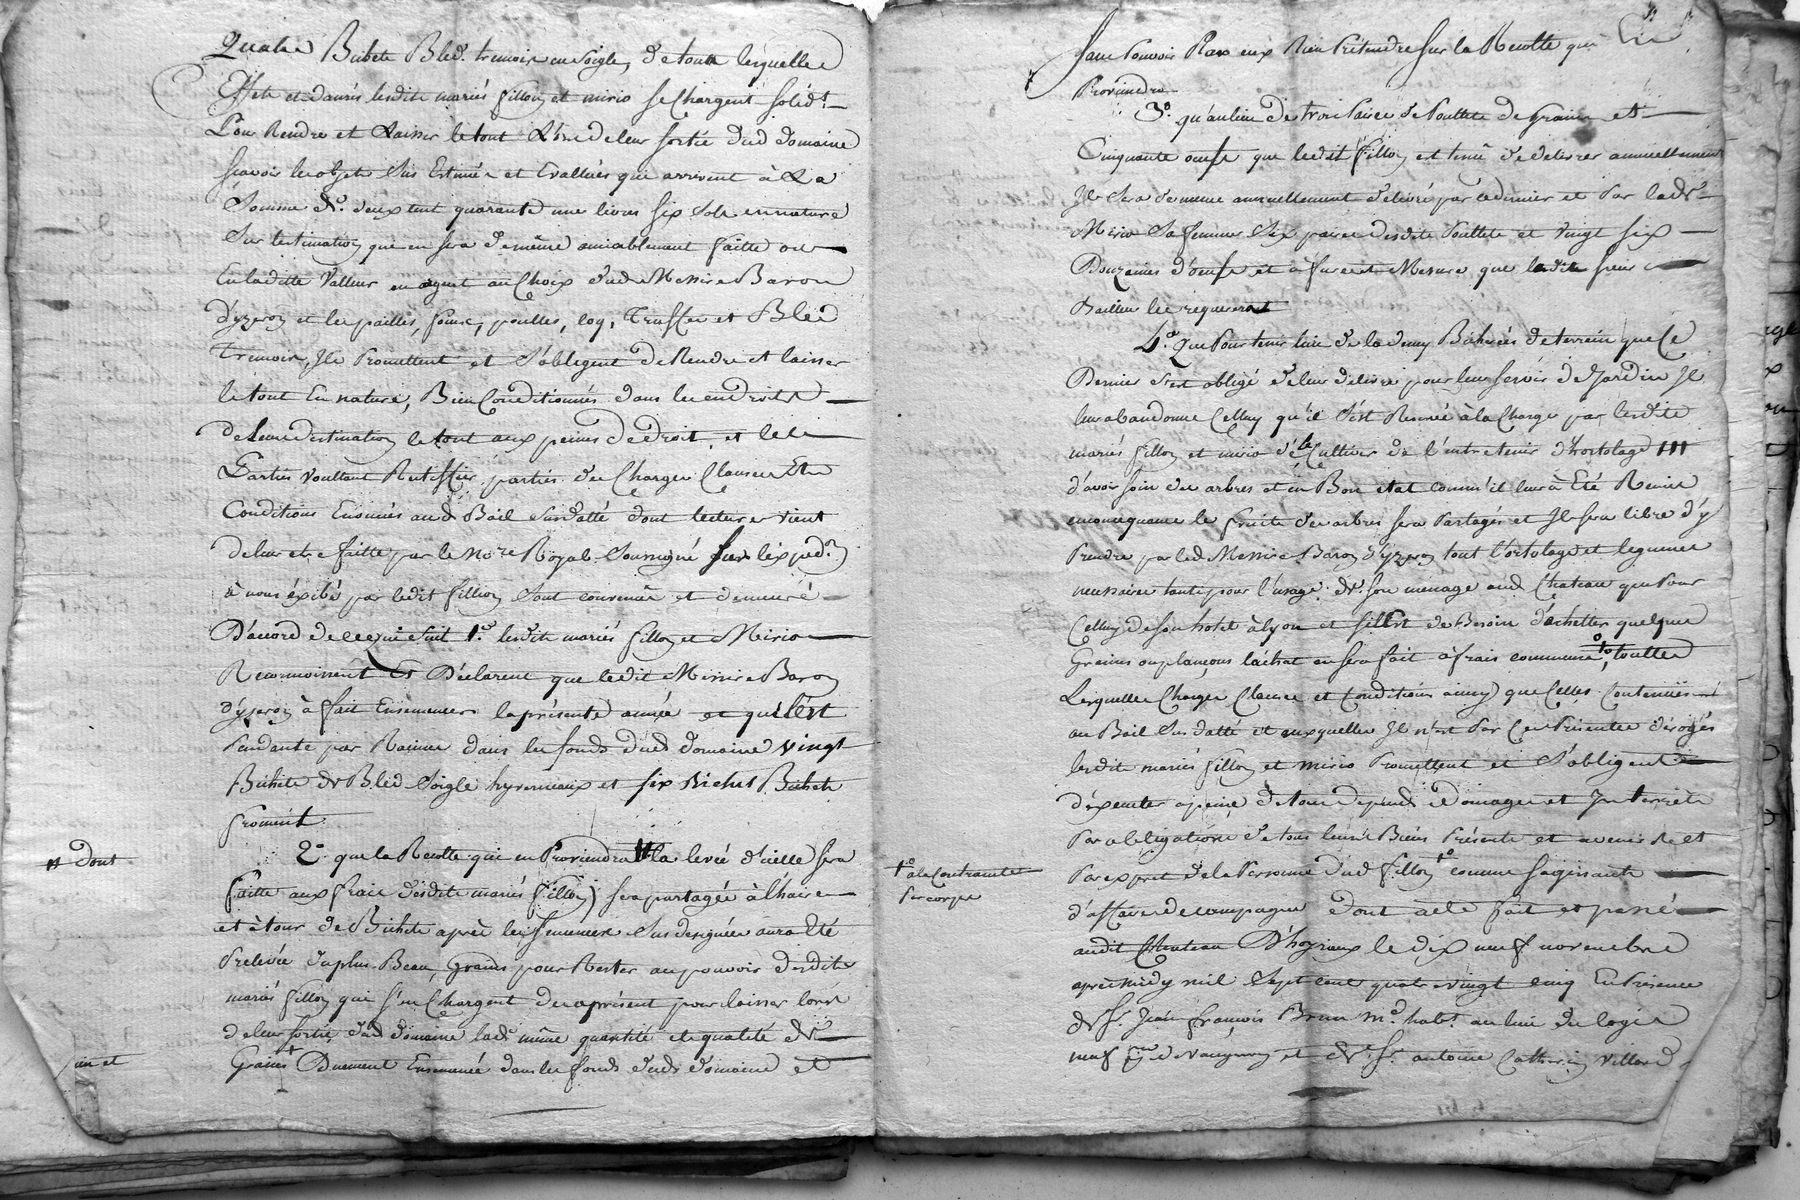 Quatre Bichets Bled tremois ou soigle, de touts lesquelles
Effets et danrés lesdits mariés fillon et mirio se Chargent solidt
Pour Rendre et Laisser le tout Lhors de leur sortie dud domaine
scavoir les objets sus Estimés et Evallués qui arrivent à La
Somme de deux cent quarante une livres six sols en nature
Sur lestimation qui en sera de même amiablement faitte ou
En laditte Valleur en argent au Choix dud Messire Baron
d'yzeron et les pailles, foins, poulles, coq, Truffes et Bled
Tremois, Ils Promettent et S'obligent de Rendre et laisser
le tout En nature, Bien Conditionnés dans les endroits
de Leurs destination le tout aux peines de droit, et les
Parties voullant Rectiffier parties des Charges Clauses Et
Conditions Enoncés aud Bail susdatté dont lecture vient
de leur etre faitte par le Nore Royal Soussigné sur l'expedon
à nous éxibé par ledit fillion sont convenus et demeuré
D'accord de ce qui suit 1° lesdits mariés fillon et Mirio
Reconnoissent Et Déclarent que ledit Messire Baron
d'yzeron à fait Ensemencer la présente année et qu'il Est
Pendante par Racines dans les fonds dud domaine vingt
Bichets de Bled Soigle hyvernaux et six Bichets
froment
2° que la Recolte qui en Proviendra la levée d'icelle sera
dont
faitte aux frais desdits mariés fillon) sera partagée à l'haire
et à tour de Bichets après les semences sus designées aura Eté
Prelevée du plus Beau Grains pour Rester au pouvoir desdits
mariés fillon qui s'en Chargent des aprésent pour laisser lors
de leur sortie dud domaine lade même quantité et qualité de
Grains Duement Ensemencée dans les fonds dud domaine et
sans Pouvoir Par eux Rien Prétendre sur la Recolte qui En
Proviendra
3° qu'au lieu de trois Paires de Poullets de Grains et
Cinquante oeufs que ledit fillon est tenu de delivrer annuellement
Il Sera de meme annuellement délivré par ce dernier et Par lade
Mirio Sa femme Six paires desdits Poullets et vingt six
Douzaines d'oeufs et à fur et Mesure que ledit sieur
Bailleur les requerera
4° Que Pour tenir lieu de la demy Bicherées de terrein que Ce
Dernier s'est obligé de leur delivrer pour leur servir de Jardin Il
leur abandonne Celluy qu'il S'est Reservé à la Charge par lesdits
mariés fillon et mirio de le Cultiver de l'entretenir d'hortolage
d'avoir soin des arbres et en Bon etat comm'il leur à Eté Remis
en consequance les fruits des arbres sera Partagés et Il sera libre d'y
Prendre par led Messire Baron d'yzeron tout l'ortolage et legumes
necessaire tant pour l'usage de son menage aud Chateau que Pour
Celluy de son hotel à lyon et s'il Est de Besoin d'achetter quelque
Graines ou plançons l'achat en sera fait à frais communs, toutes
Lesquelles Charges Clauses et Conditions ainsy que Celles Contenües
au Bail Sus datté et auxquelles Il n'est Par Ces Présentes dérogés
lesdits mariés fillon et mirio Promettent et S'obligent
d'éxecuter a peine de tous depends domages et Interrêts
Par obligations de tous leurs Biens Présents et avenirs et
1° à la Contrainte
Par corps
Par exprès de la Personne dud fillon comme s'agissant
d'affaires de campagne dont acte fait et passé
audit Chateau D'hoyrieux le dix neuf novembre
après midy mil Sept cent quatre vingt cinq En Présence
de Sr Jean François Brun md habt au lieu du logis
neuf de Vaugneray et de Sr antoine Catherin Villard